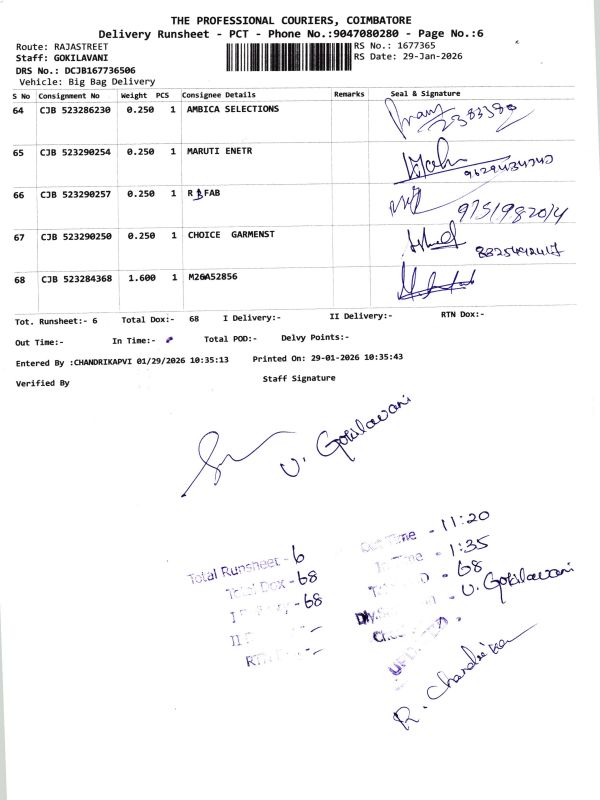 THE PROFESSIONAL COURIERS, COIMBATORE
Delivery Runsheet - PCT - Phone No.:9047080280 - Page No.:6
Route: RAJASTREET
RS No.: 1677365
Staff: GOKILAVANI
RS Date: 29-Jan-2026
DRS No.: DCJB167736506
Vehicle: Big Bag Delivery
S No Consignment No Weight PCS Consignee Details Remarks Seal & Signature
64 CJB 523286230 0.250 1 AMBICA SELECTIONS
65 CJB 523290254 0.250 1 MARUTI ENETR
9629434747
66 CJB 523290257 0.250 1 R B FAB
9751982014
67 CJB 523290250 0.250 1 CHOICE GARMENST
8825492417
68 CJB 523284368 1.600 1 M26A52856
Tot. Runsheet:- 6 Total Dox:- 68 I Delivery:- II Delivery:- RTN Dox:-
Out Time:- In Time:- Total POD:- Delvy Points:-
Entered By :CHANDRIKAPVI 01/29/2026 10:35:13 Printed On: 29-01-2026 10:35:43
Verified By Staff Signature
V. Gokilavani
Total Runsheet - 6
Out Time - 11:20
Total Dox - 68
In Time - 1:35
68
68
V. Gokilavani
R. Chandrika